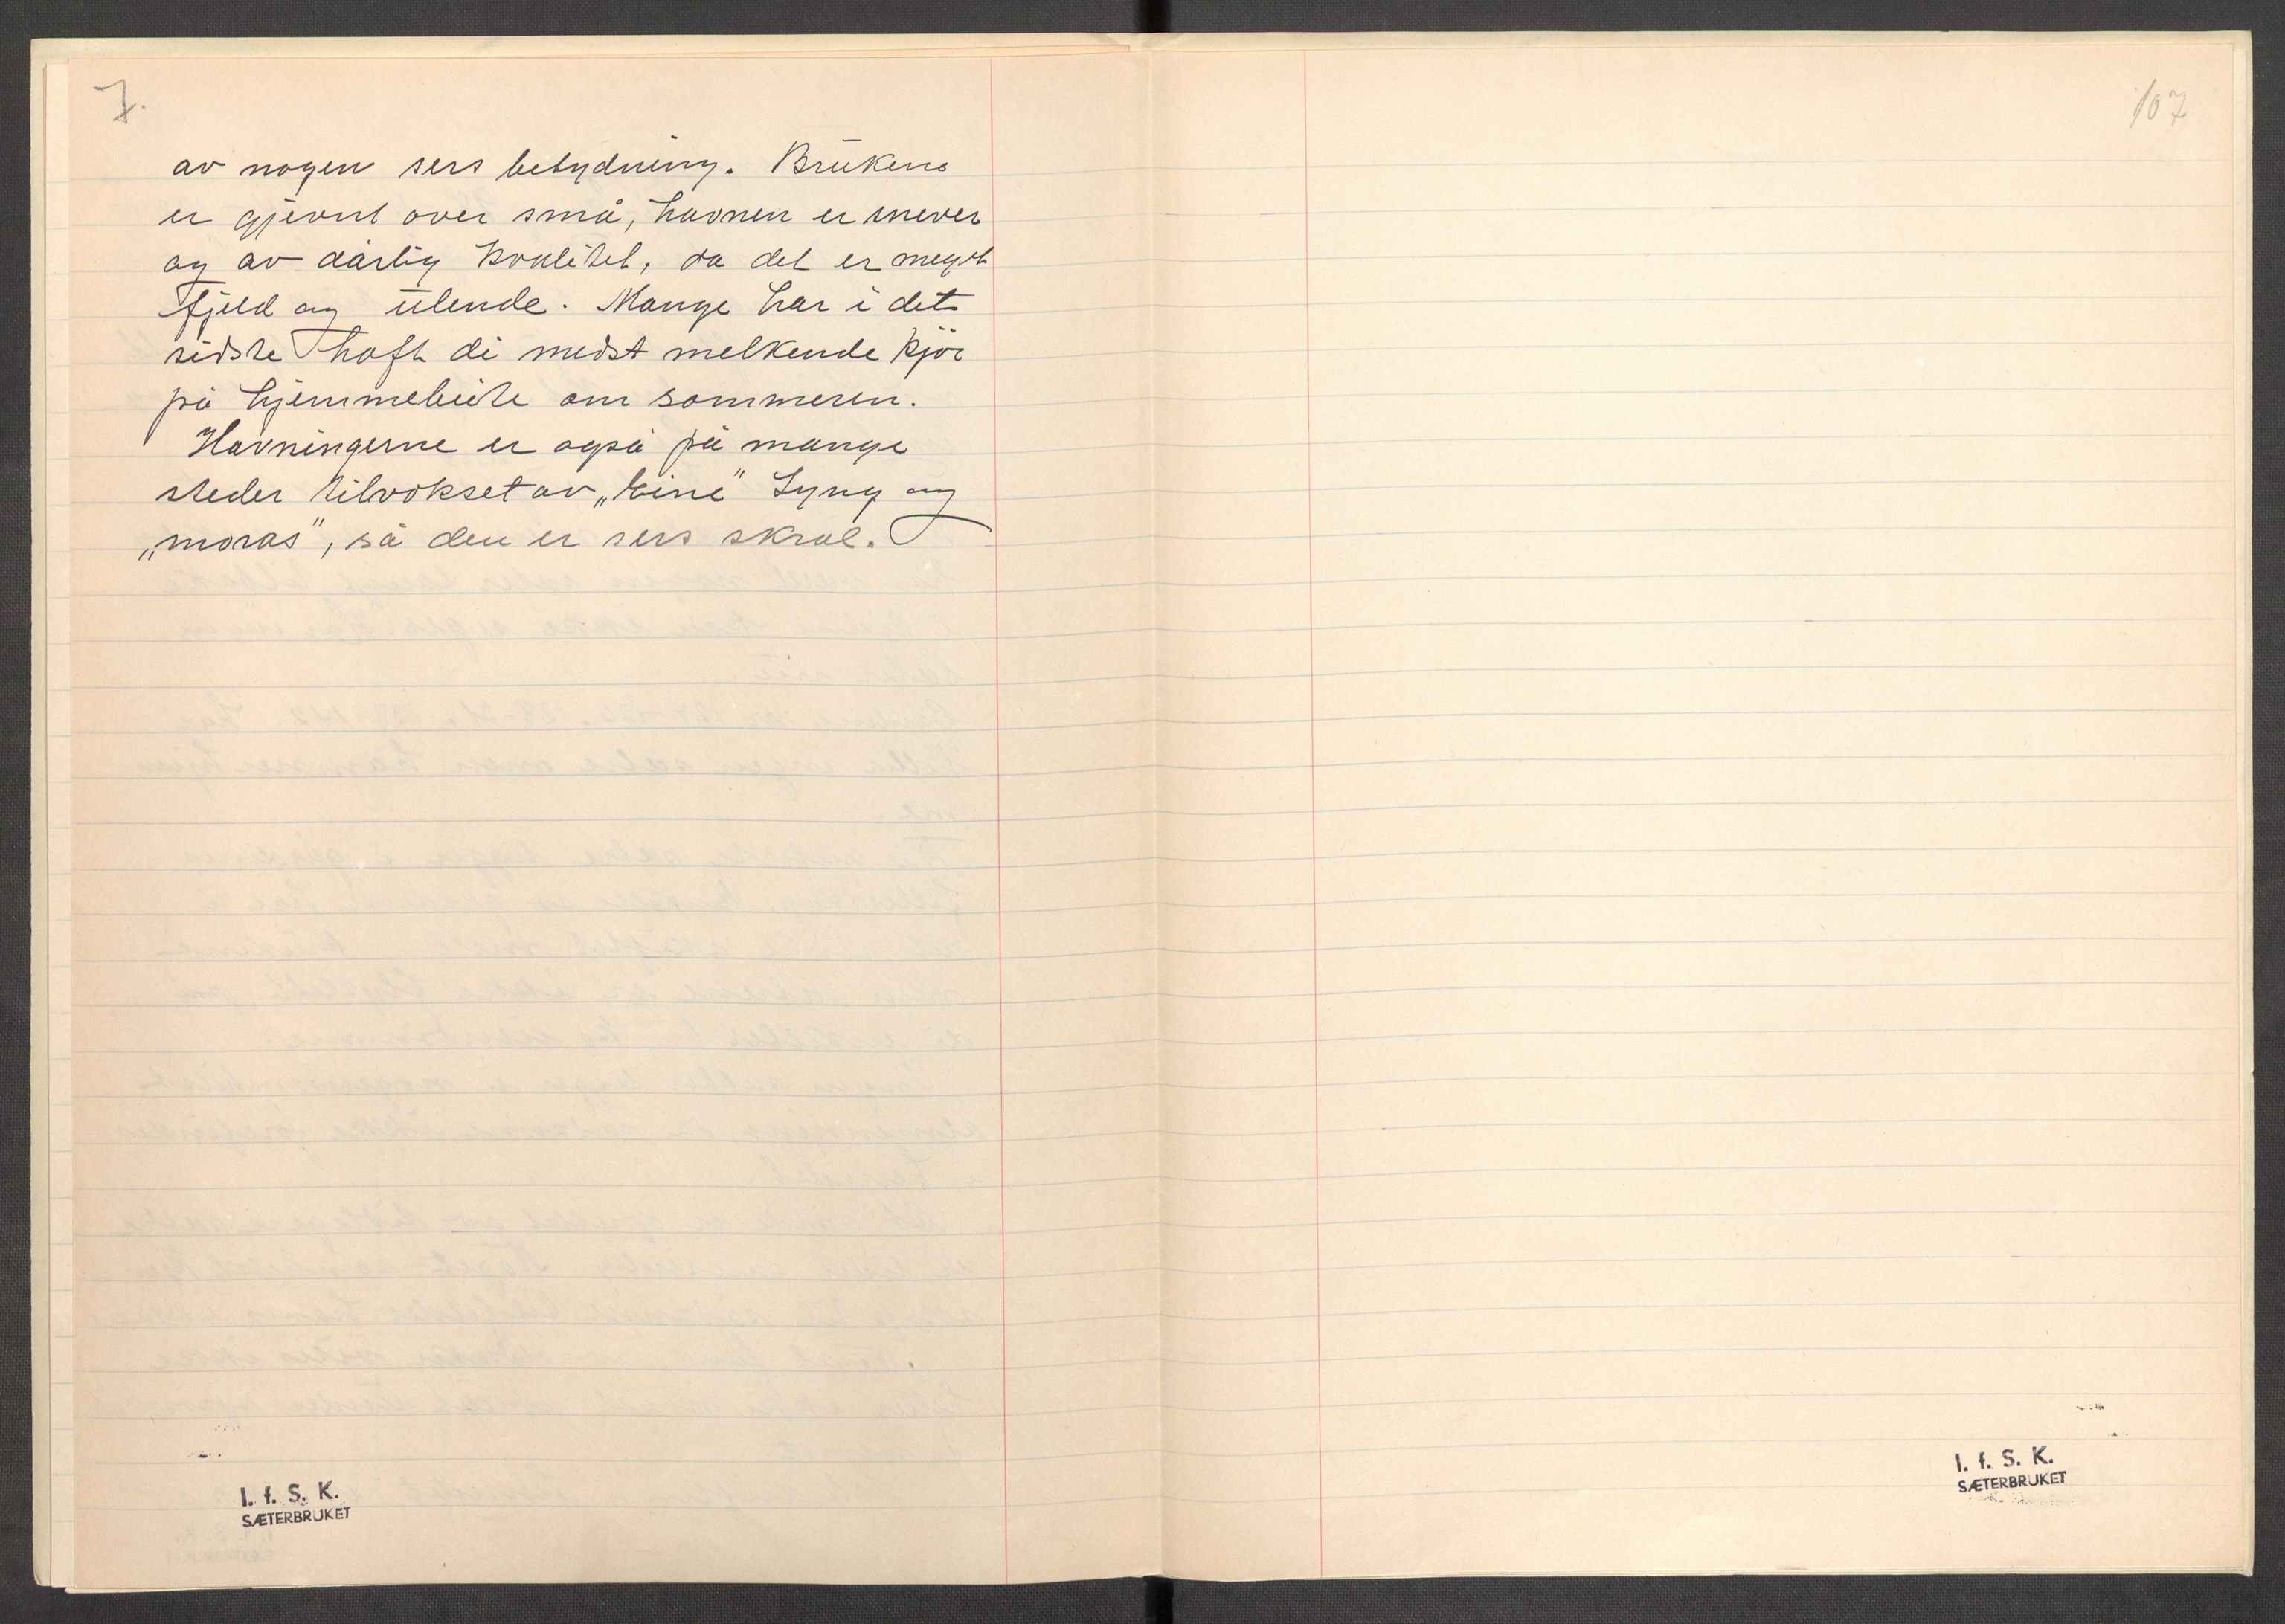 7.
107
av nogen sers betydning. Brukene
er gjevnt over små, havnen er snever
og av dårlig kvalitet, da det er meget
fjeld og ulende. Mange har i det
sidste haft di medst melkende kjör
på hjemmebeite om sommeren.
Havningerne er også på mange
steder tilvokset av „Eine" Lyng og
„moras", så den er sers skral.
I. f. S. K.
SÆTERBRUKET
I. f. S. K.
SÆTERBRUKET